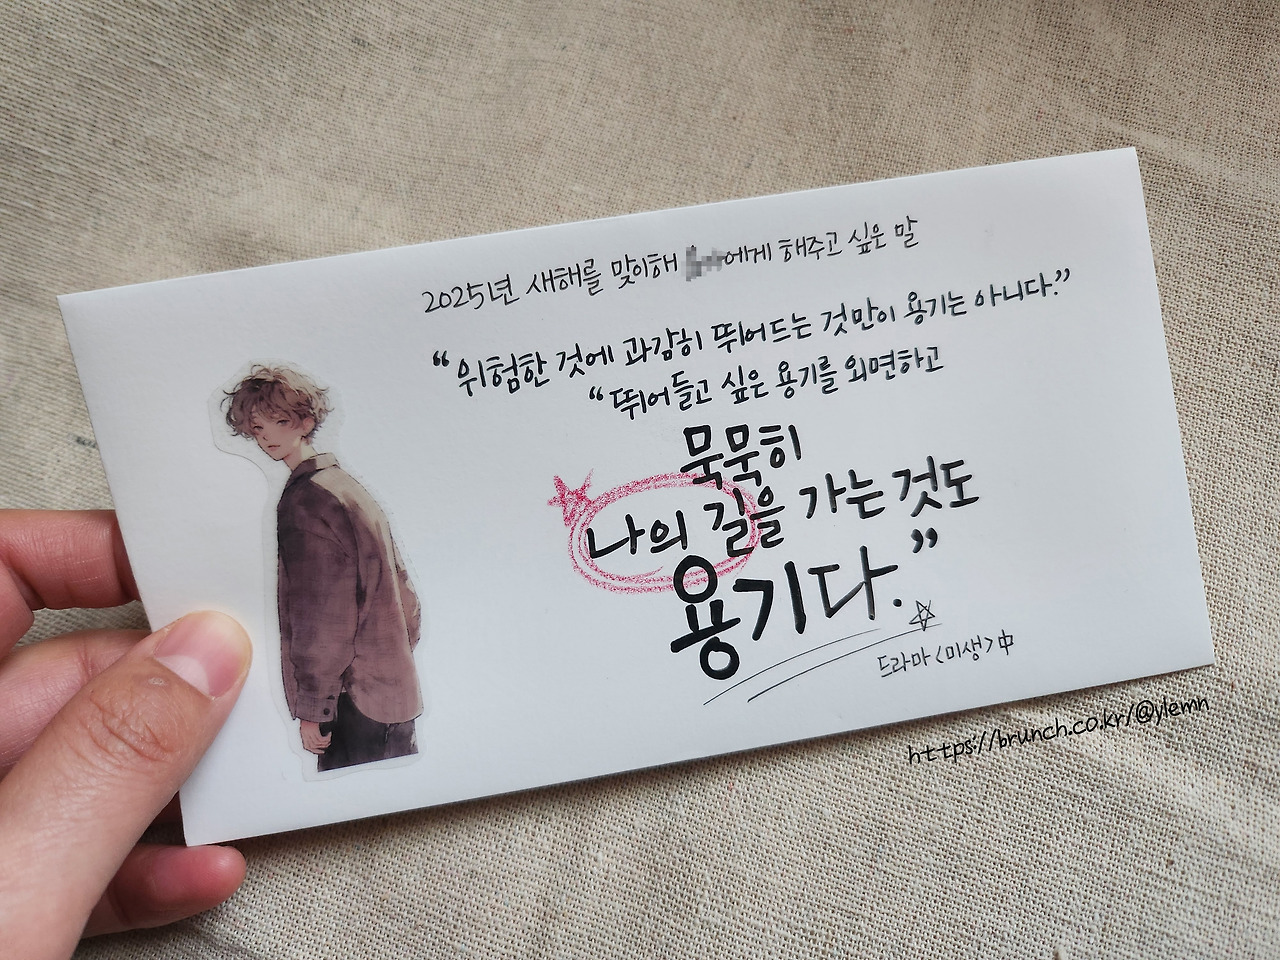 2025년 새해를 맞이해 에게 해주고 싶은 말
“위험한 것에 과감히 뛰어드는 것만이 용기는 아니다.”
“뛰어들고 싶은 용기를 외면하고
묵묵히
나의 길을 가는 것도
용기다.”
드라마 <미생> 中
https://brunch.co.kr/@ylemn